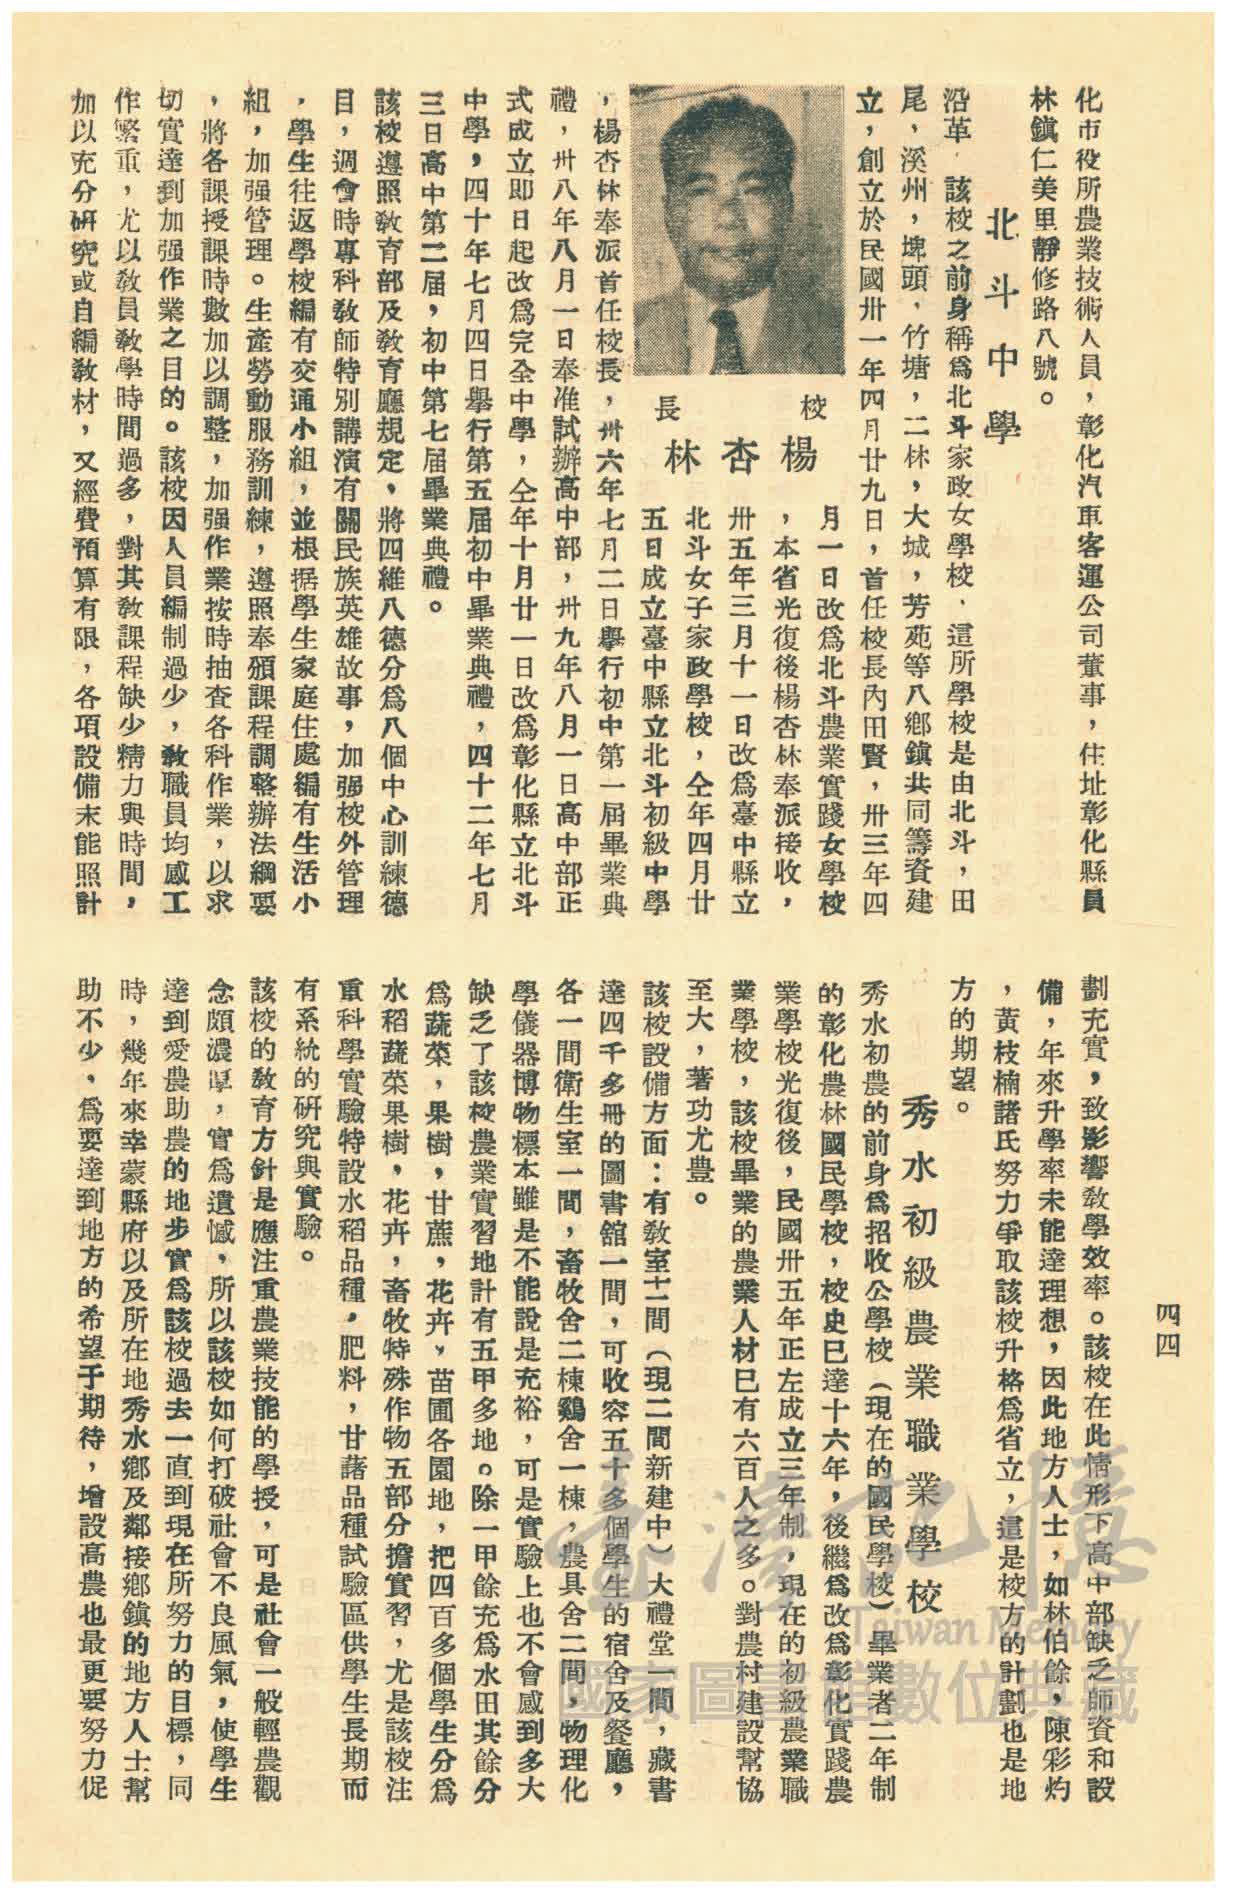 化市役所農業技術人員，彰化汽車客運公司董事，住址彰化縣員
林鎮仁美里靜修路八號。
北斗中學
沿革．該校之前身稱爲北斗家政女學校．這所學校是由北斗，田
尾，溪州，埤頭，竹塘，二林，大城，芳苑等八鄉鎮共同籌資建
立，創立於民國卅一年四月廿九日，首任校長內田賢，卅三年四
校長
楊杏林
月一日改爲北斗農業實踐女學校
，本省光復後楊杏林奉派接收，
卅五年三月十一日改爲臺中縣立
北斗女子家政學校，仝年四月廿
五日成立臺中縣立北斗初級中學
，楊杏林奉派首任校長，卅六年七月二日舉行初中第一屆畢業典
禮，卅八年八月一日奉准試辦高中部，卅九年八月一日高中部正
式成立即日起改爲完全中學，仝年十月廿一日改爲彰化縣立北斗
中學，四十年七月四日舉行第五屆初中畢業典禮，四十二年七月
三日高中第二屆，初中第七屆畢業典禮。
該校遵照教育部及教育廳規定，將四維八德分爲八個中心訓練德
目，週會時專科教師特別講演有關民族英雄故事，加强校外管理
，學生往返學校編有交通小組，並根据學生家庭住處編有生活小
組，加强管理。生產勞動服務訓練，遵照奉頒課程調整辦法綱要
，將各課授課時數加以調整，加强作業按時抽查各科作業，以求
切實達到加强作業之目的。該校因人員編制過少，教職員均感工
作繁重，尤以教員教學時間過多，對其教課程缺少精力與時間，
加以充分研究或自編教材，又經費預算有限，各項設備未能照計
劃充實，致影響教學效率。該校在此情形下高中部缺乏師資和設
備，年來升學率未能達理想，因此地方人士，如林伯餘，陳彩灼
，黃枝楠諸氏努力爭取該校升格爲省立，這是校方的計劃也是地
方的期望。
秀水初級農業職業學校
秀水初農的前身爲招收公學校（現在的國民學校）畢業者二年制
的彰化農林國民學校，校史已達十六年，後繼爲改爲彰化實踐農
業學校光復後，民國卅五年正左成立三年制，現在的初級農業職
業學校，該校畢業的農業人材已有六百人之多。對農村建設幫協
至大，著功尤豊。
該校設備方面：有教室十二間（現二間新建中）大禮堂一間，藏書
達四千多冊的圖書舘一間，可收容五十多個學生的宿舍及餐廳，
各一間衛生室一間，畜牧舍二棟鷄舍一棟，農具舍二間，物理化
學儀器博物標本雖是不能說是充裕，可是實驗上也不會感到多大
缺乏了該校農業實習地計有五甲多地。除一甲餘充爲水田其餘分
爲蔬菜，果樹，甘蔗，花卉，苗圃各園地，把四百多個學生分爲
水稻蔬菜果樹，花卉，畜牧特殊作物五部分擔實習，尤是該校注
重科學實驗特設水稻品種，肥料，甘藷品種試驗區供學生長期而
有系統的研究與實驗。
該校的教育方針是應注重農業技能的學授，可是社會一般輕農觀
念頗濃厚，實爲遺憾，所以該校如何打破社會不良風氣，使學生
達到愛農助農的地步實爲該校過去一直到現在所努力的目標，同
時，幾年來幸蒙縣府以及所在地秀水鄉及鄰接鄉鎮的地方人士幫
助不少，爲要達到地方的希望于期待，增設高農也最更要努力促
四四
臺灣記憶
Taiwan Memory
國家圖書館數位典藏